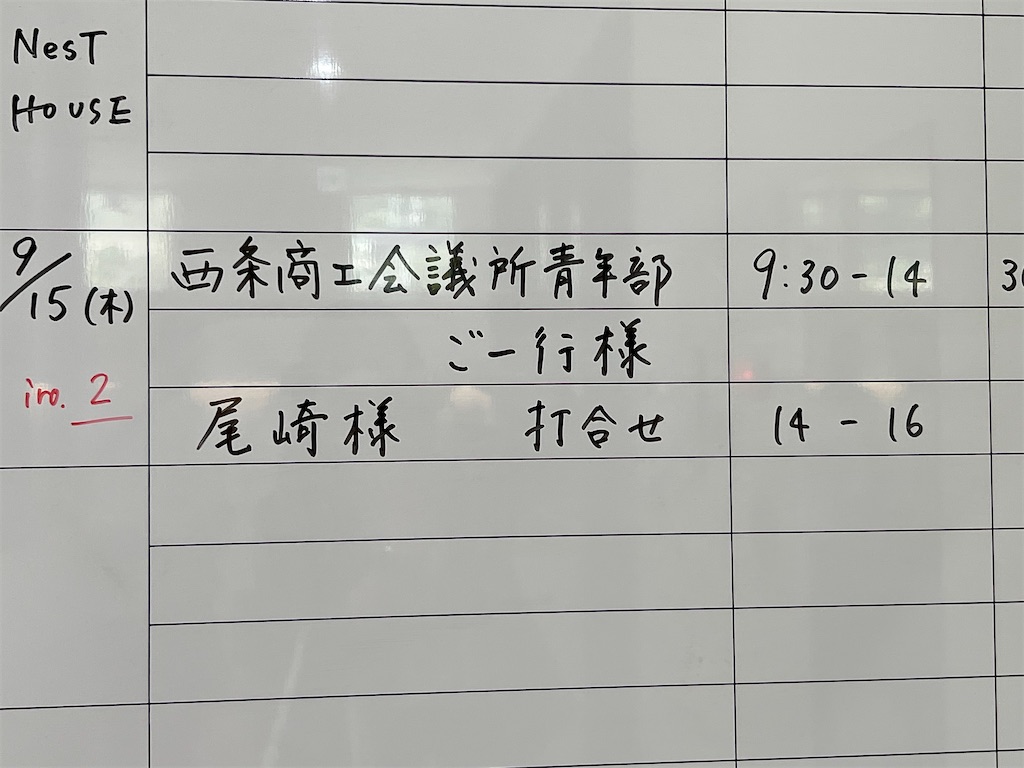 NesT
HOUSE
9/15(木)
西条商工会議所青年部 9:30-14 30
ご一行様
iro. 2
尾崎様 打合せ 14-16